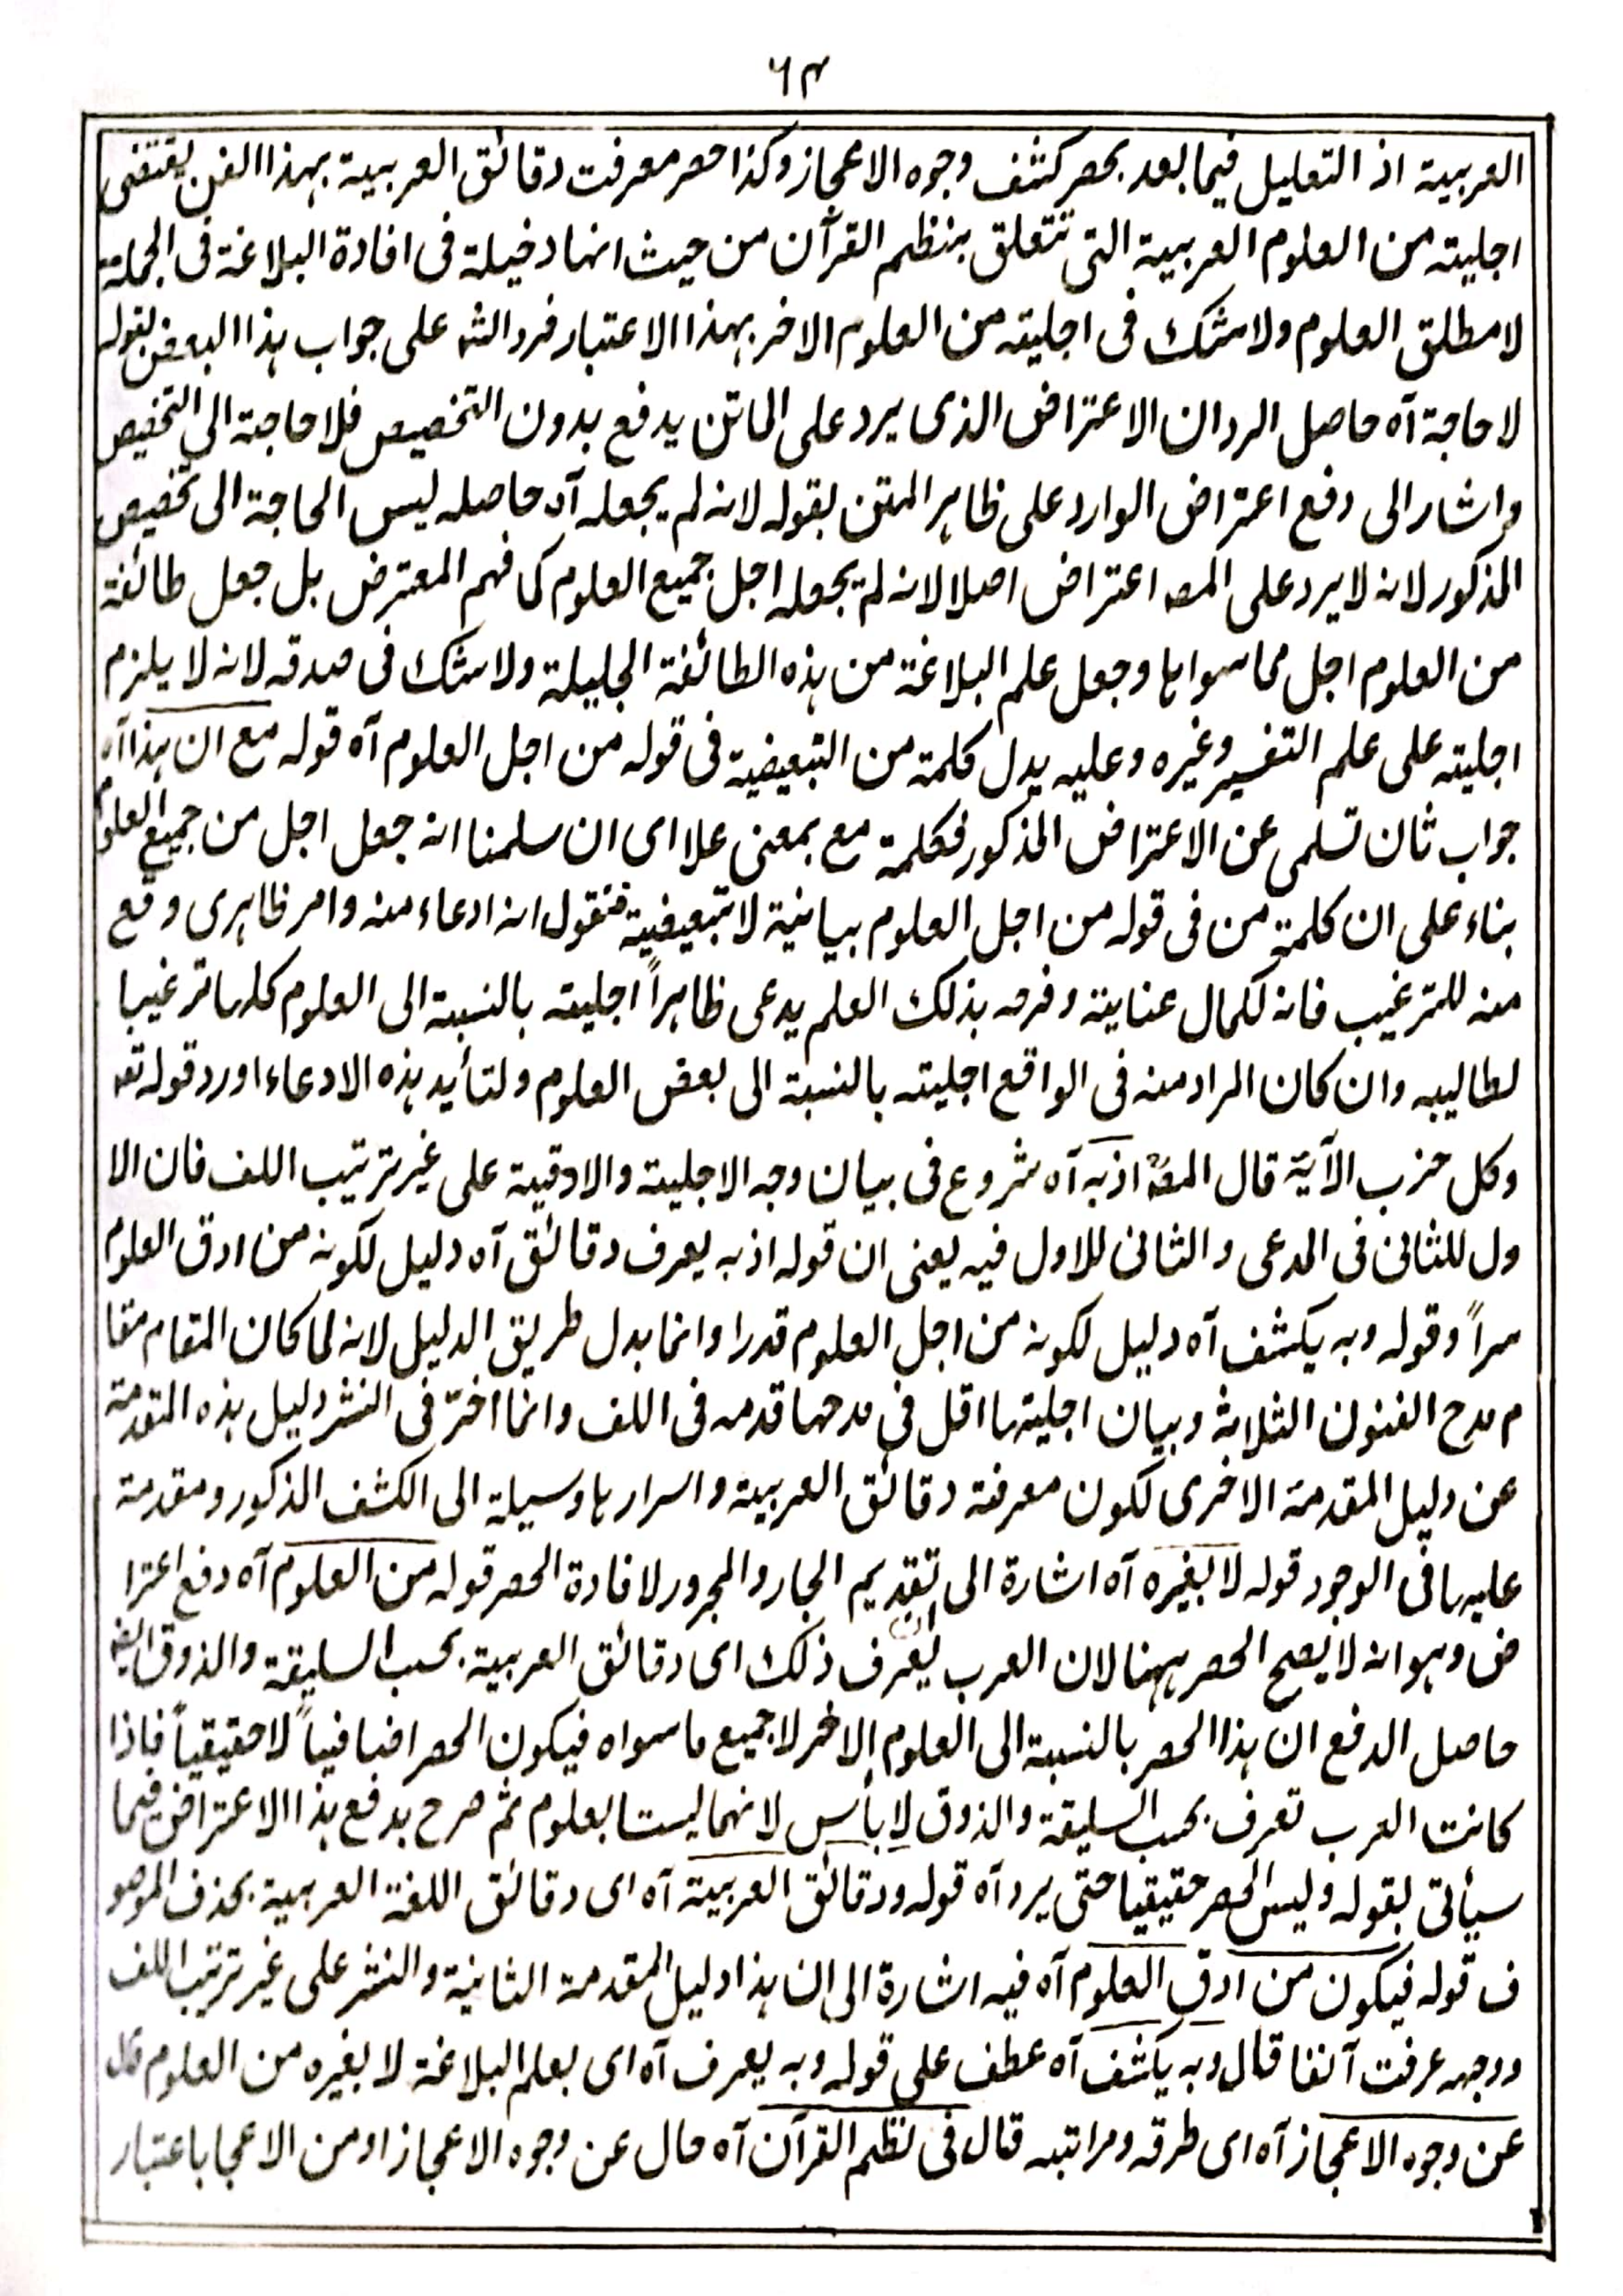 ٦٣
العربية اذ التعليل فيما بعد بحصر كشف وجوه الاعجاز وكذا حصر معرفت دقائق العربية بهذا الفن يقتضى
اجليته من العلوم العربية التى تتعلق بنظم القرآن من حيث انها دخيلة فى افادة البلاغة فى الجملة
لا مطلق العلوم ولا شك فى اجليته من العلوم الاخر بهذا الاعتبار فرد الشه على جواب هذا البعض بقوله
لا حاجة آه حاصل الرد ان الاعتراض الذى يرد على الماتن يدفع بدون التخصيص فلا حاجة الى التخصيص
واشار الى دفع اعتراض الوارد على ظاهر المتن بقوله لانه لم يجعله آه حاصله ليس الحاجة الى تخصيص
المذكور لانه لا يرد على المصه اعتراض اصلا لانه لم يجعله اجل جميع العلوم كما فهم المعترض بل جعل طائفة
من العلوم اجل مما سواها وجعل علم البلاغة من هذه الطائفة الجليلة ولا شك فى صدقه لانه لا يلزم
اجليته على علم التفسير وغيره وعليه يدل كلمة من التبعيضية فى قوله من اجل العلوم آه قوله مع ان هذا آه
جواب ثان تسلمى عن الاعتراض المذكور فكلمة مع بمعنى علا اى ان سلمنا انه جعل اجل من جميع العلوم
بناء على ان كلمة من فى قوله من اجل العلوم بيانية لا تبعيضية فنقول انه ادعاء منه وامر ظاهرى وقع
منه للترغيب فانه لكمال عنايته وفرحه بذلك العلم يدعى ظاهراً اجليته بالنسبة الى العلوم كلها ترغيبا
لطالبيه وان كان المراد منه فى الواقع اجليته بالنسبة الى بعض العلوم ولتأيد هذه الادعاء اورد قوله تعه
وكل حزب الآية قال المصه اذ به آه شروع فى بيان وجه الاجلية والادقية على غير ترتيب اللف فان الا
ول للثانى فى المدعى والثانى للاول فيه يعنى ان قوله اذ به يعرف دقائق آه دليل لكونه من ادق العلوم
سراً وقوله وبه يكشف آه دليل لكونه من اجل العلوم قدرا وانما بدل طريق الدليل لانه لما كان المقام مقا
م مدح الفنون الثلاثة وبيان اجليتها اقل فى مدحها قدمه فى اللف وانما اخر فى النشر دليل هذه المقدمة
عن دليل المقدمة الاخرى لكون معرفة دقائق العربية واسرارها وسيلة الى الكشف المذكور ومقدمة
عليها فى الوجود قوله لا بغيره آه اشارة الى تقديم الجار والمجرور لافادة الحصر قوله من العلوم آه دفع اعترا
ض وهو انه لا يصح الحصر ههنا لان العرب يعرف ذلك اى دقائق العربية بحسب السليقة والذوق ايضه
حاصل الدفع ان هذا الحصر بالنسبة الى العلوم الاخر لا جميع ما سواه فيكون الحصر اضافياً لا حقيقياً فاذا
كانت العرب تعرف بحسب السليقة والذوق لا بأس لانهما ليستا بعلوم ثم صرح بدفع هذا الاعتراض فيما
سيأتى بقوله وليس الحصر حقيقيا حتى يرد آه قوله ودقائق العربية آه اى دقائق اللغة العربية بحذف الموصو
ف قوله فيكون من ادق العلوم آه فيه اشارة الى ان هذا دليل المقدمة الثانية والنشر على غير ترتيب اللف
ووجهه عرفت آنفا قال وبه يكشف آه عطف على قوله وبه يعرف آه اى بعلم البلاغة لا بغيره من العلوم قال
عن وجوه الاعجاز آه اى طرقه ومراتبه قال فى نظم القرآن آه حال عن وجوه الاعجاز او من الاعجا باعتبار